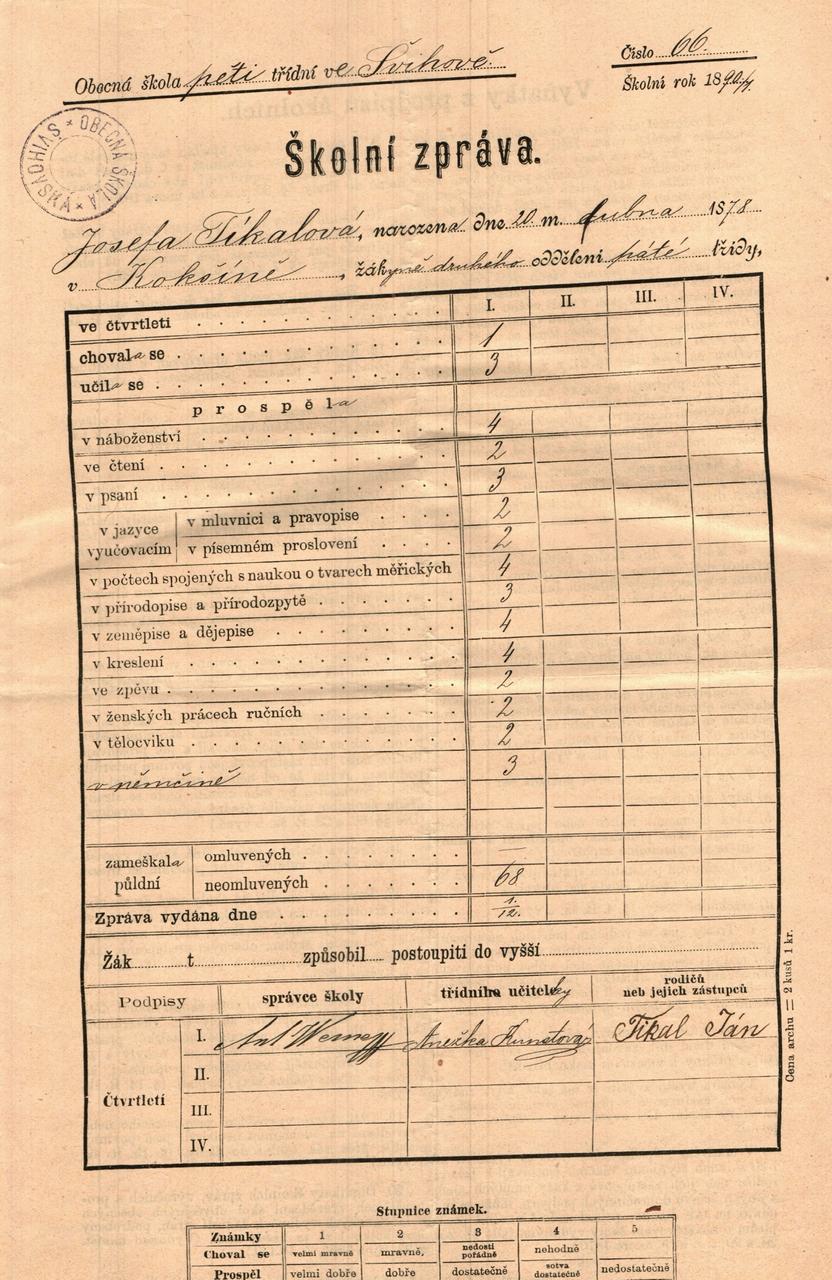 Obecná škola pěti třídní ve Švihově.
Číslo 66.
Školní rok 1890/1
OBECNÁ ŠKOLA * ŠVIHOVSKÁ *
Školní zpráva.
Josefa Tikalová, narozena dne 20. m. dubna 1878
v Kokšíně, žákyně druhého oddělení páté třídy,
ve čtvrtletí I. II. III. IV.
chovala se 1
učila se 3
prospěla
v náboženství 4
ve čtení 2
v psaní 3
v jazyce vyučovacím
v mluvnici a pravopise 2
v písemném proslovení 2
v počtech spojených s naukou o tvarech měřických 4
v přírodopise a přírodozpytě 3
v zeměpise a dějepise 4
v kreslení 4
ve zpěvu 2
v ženských prácech ručních 2
v tělocviku 2
v němčině 3
zameškala půldní
omluvených —
neomluvených 68
Zpráva vydána dne 1./12.
Žák t způsobil postoupiti do vyšší
Podpisy
správce školy
třídního učitelky
rodičů
neb jejich zástupců
Čtvrtletí
I. Anežka Kunstová Tikal Ján
II.
III.
IV.
Cena archu = 2 kusů 1 kr.
Stupnice známek.
Známky 1 2 3 4 5
Choval se velmi mravně mravně, nedosti pořádně nehodně
Prospěl velmi dobře dobře dostatečně sotva dostatečně nedostatečně